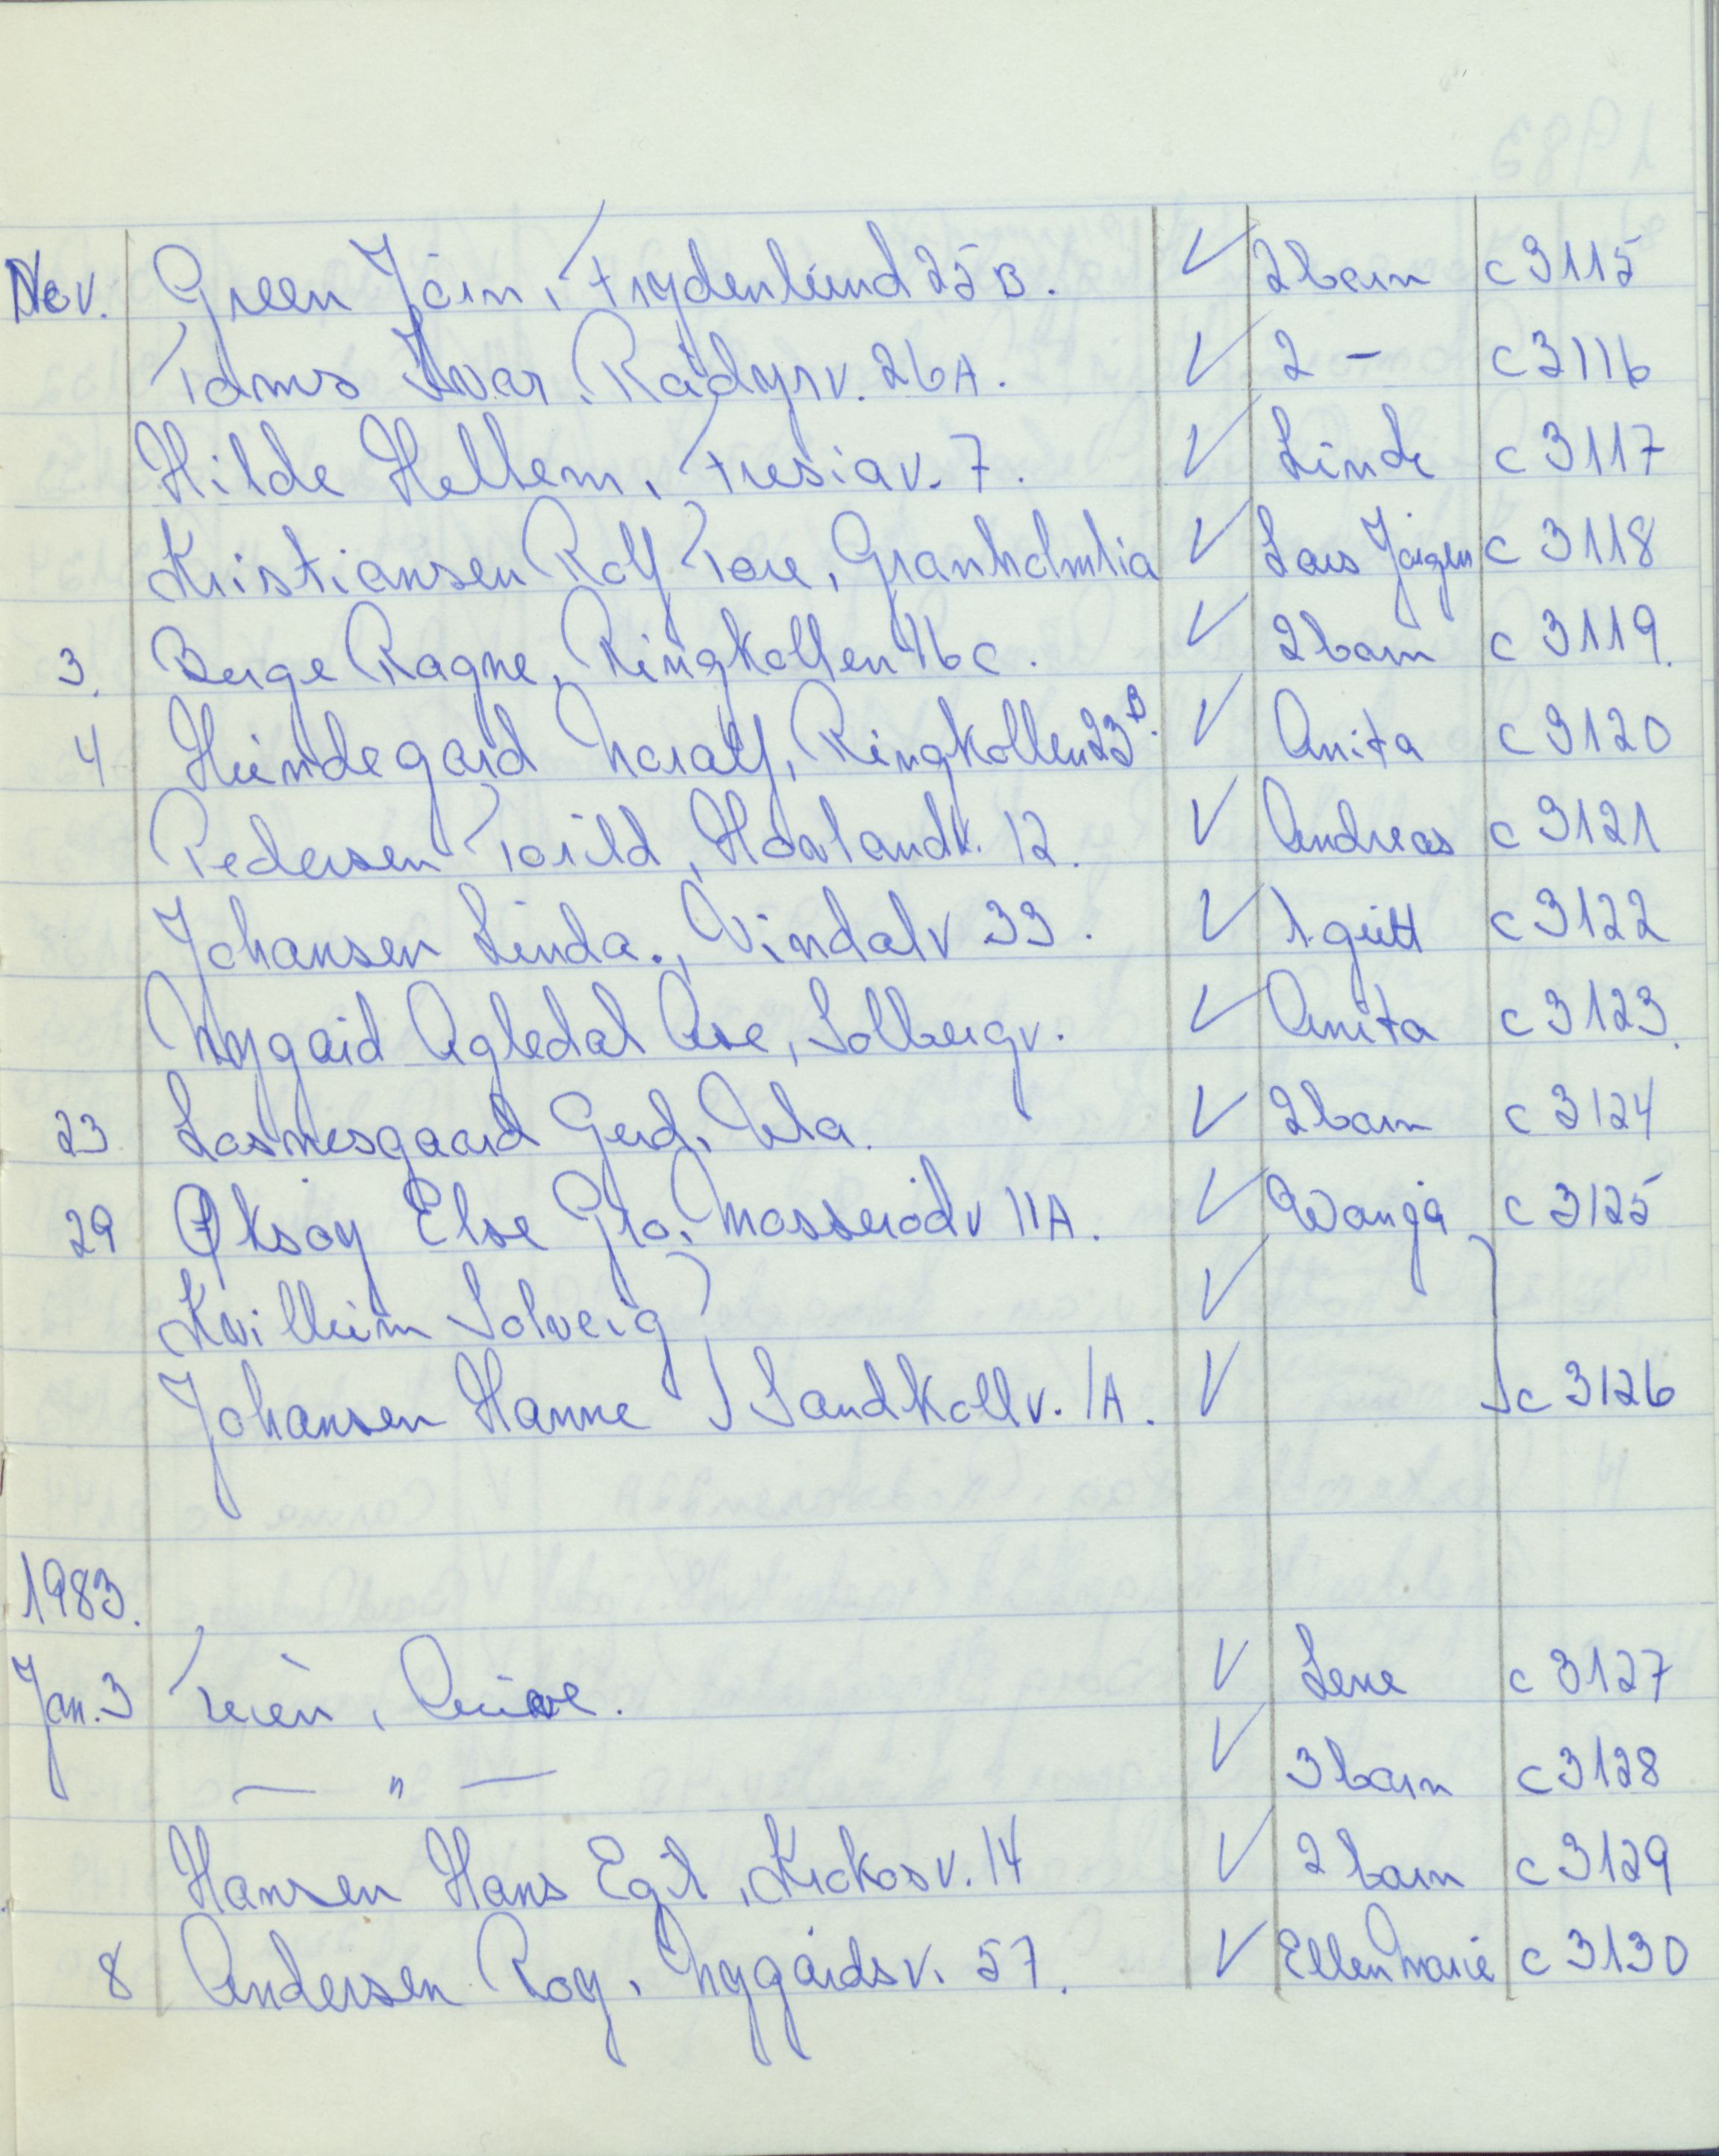 Nov. Green Jörn, Frydenlund 25 B. V 2 barn c 3115
Tamas Ivar, Rådyrv. 26 A. V 2 - c 3116
Hilde Hellem, Fresiav. 7. V Linde c 3117
Kristiansen Rolf Tore, Granholmlia V Lars Jørgen c 3118
3. Berge Ragne, Ringkollen 16 c. V 2 barn c 3119.
4 Hundegard Noralf, Ringkollen 23 B. V Anita c 3120
Pedersen Torild, Havlandv. 12. V Andreas c 3121
Johansen Linda., Vindalv 33. V 1 gutt c 3122
Nygaard Agledal Åse, Solbergv. V Anita c 3123.
23 Lasnesgaard Gerd, Ula. V 2 barn c 3124
29 Øksøy Else Gro, Mosserødv 11 A. V Wanja c 3125
Kvilheim Solveig ) V
Johansen Hanne ) Sandkollv. 1A. V c 3126
1983.
Jan. 3 Treén, V Lene c 3127
— " — V 3 barn c 3128
Hansen Hans Egil, Krokosv. 14 V 2 barn c 3129
8 Andersen Roy, Nygårdsv. 57. V Ellen Marie c 3130